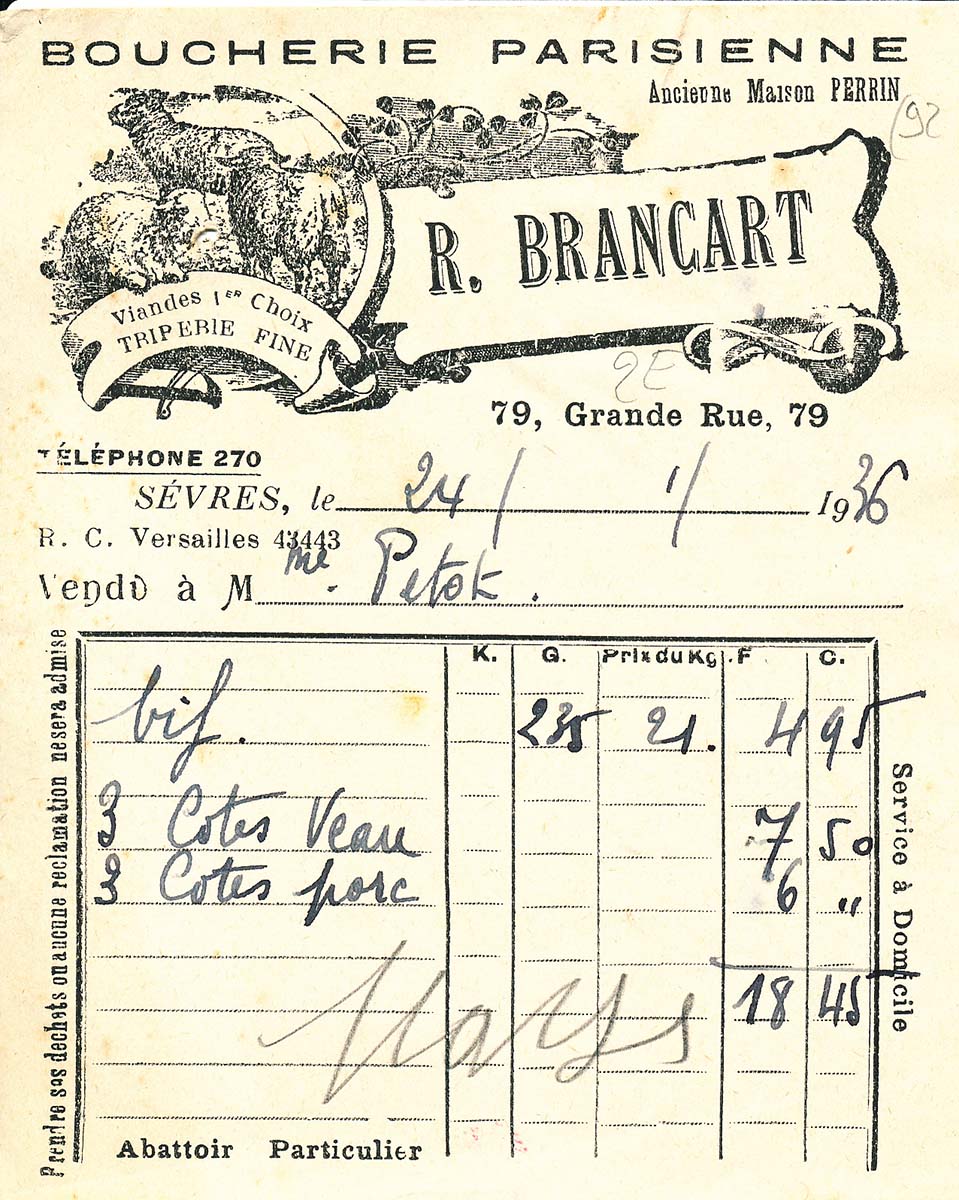 BOUCHERIE PARISIENNE
Ancienne Maison PERRIN
92
R. BRANCART
Viandes 1ER Choix
TRIPERIE FINE
2E
79, Grande Rue, 79
TÉLÉPHONE 270
SÉVRES, le 24 / 1 / 1936
R. C. Versailles 43443
Vendu à Mme Petok.
K. G. Prix du Kg. F C.
bif. 235 21. 4 95
3 Cotes Veau 7 50
3 Cotes porc 6 "
18 45
Abattoir Particulier
Prendre ses dechets ou aucune reclamation ne sera admise
Service à Domicile